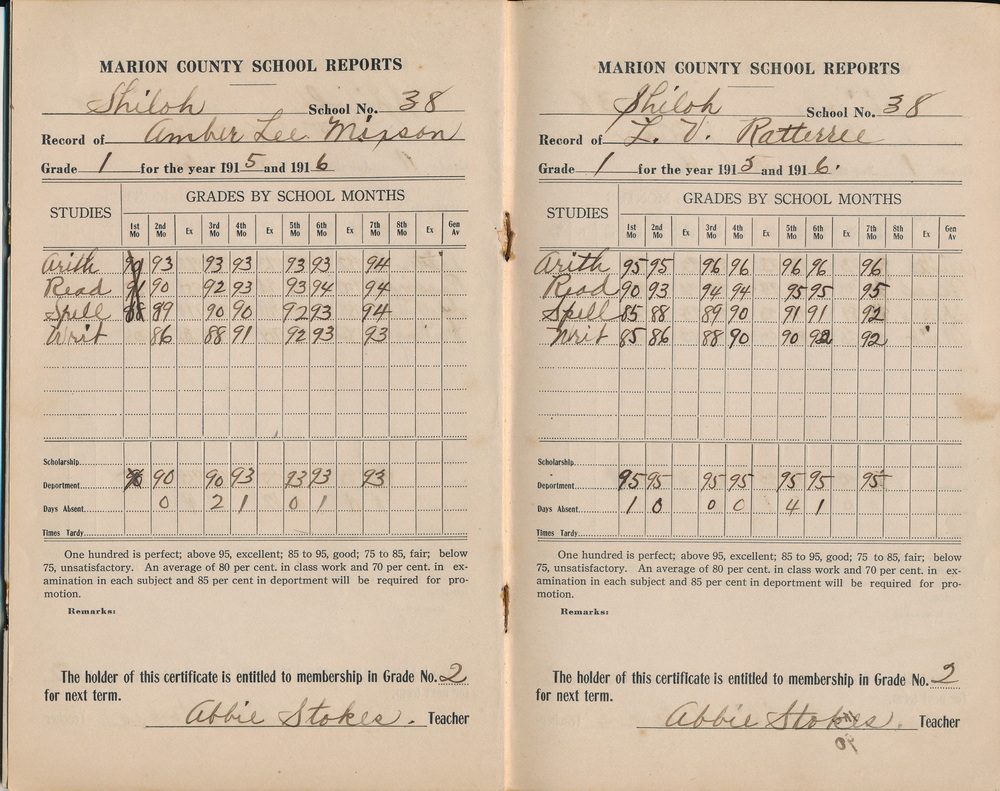 MARION COUNTY SCHOOL REPORTS
Shiloh School No. 38
Record of Amber Lee Mixson
Grade 1 for the year 1915 and 1916
STUDIES GRADES BY SCHOOL MONTHS
1st Mo 2nd Mo Ex 3rd Mo 4th Mo Ex 5th Mo 6th Mo Ex 7th Mo 8th Mo Ex Gen Av
Arith 93 93 93 93 93 94
Read 90 92 93 93 94 94
Spell 88 89 90 90 92 93 94
Writ 86 88 91 92 93 93
Scholarship
Department 90 90 93 93 93 93
Days Absent 0 2 1 0 1
Times Tardy
One hundred is perfect; above 95, excellent; 85 to 95, good; 75 to 85, fair; below
75, unsatisfactory. An average of 80 per cent. in class work and 70 per cent. in ex-
amination in each subject and 85 per cent in deportment will be required for pro-
motion.
Remarks:
The holder of this certificate is entitled to membership in Grade No. 2
for next term.
Abbie Stokes. Teacher
MARION COUNTY SCHOOL REPORTS
Shiloh School No. 38
Record of L. V. Ratterree
Grade 1 for the year 1915 and 1916.
STUDIES GRADES BY SCHOOL MONTHS
1st Mo 2nd Mo Ex 3rd Mo 4th Mo Ex 5th Mo 6th Mo Ex 7th Mo 8th Mo Ex Gen Av
Arith 95 95 96 96 96 96 96
Read 90 93 94 94 95 95 95
Spell 85 88 89 90 91 91 92
Writ 85 86 88 90 90 92 92
Scholarship
Department 95 95 95 95 95 95 95
Days Absent 1 0 0 0 4 1
Times Tardy
One hundred is perfect; above 95, excellent; 85 to 95, good; 75 to 85, fair; below
75, unsatisfactory. An average of 80 per cent. in class work and 70 per cent. in ex-
amination in each subject and 85 per cent in deportment will be required for pro-
motion.
Remarks:
The holder of this certificate is entitled to membership in Grade No. 2
for next term.
Abbie Stokes. Teacher